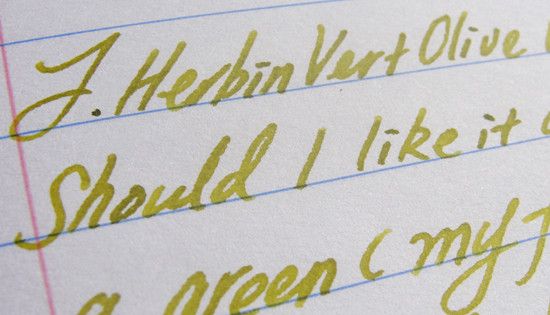 J. Herbin Vert Olive
Should I like it
a green (my